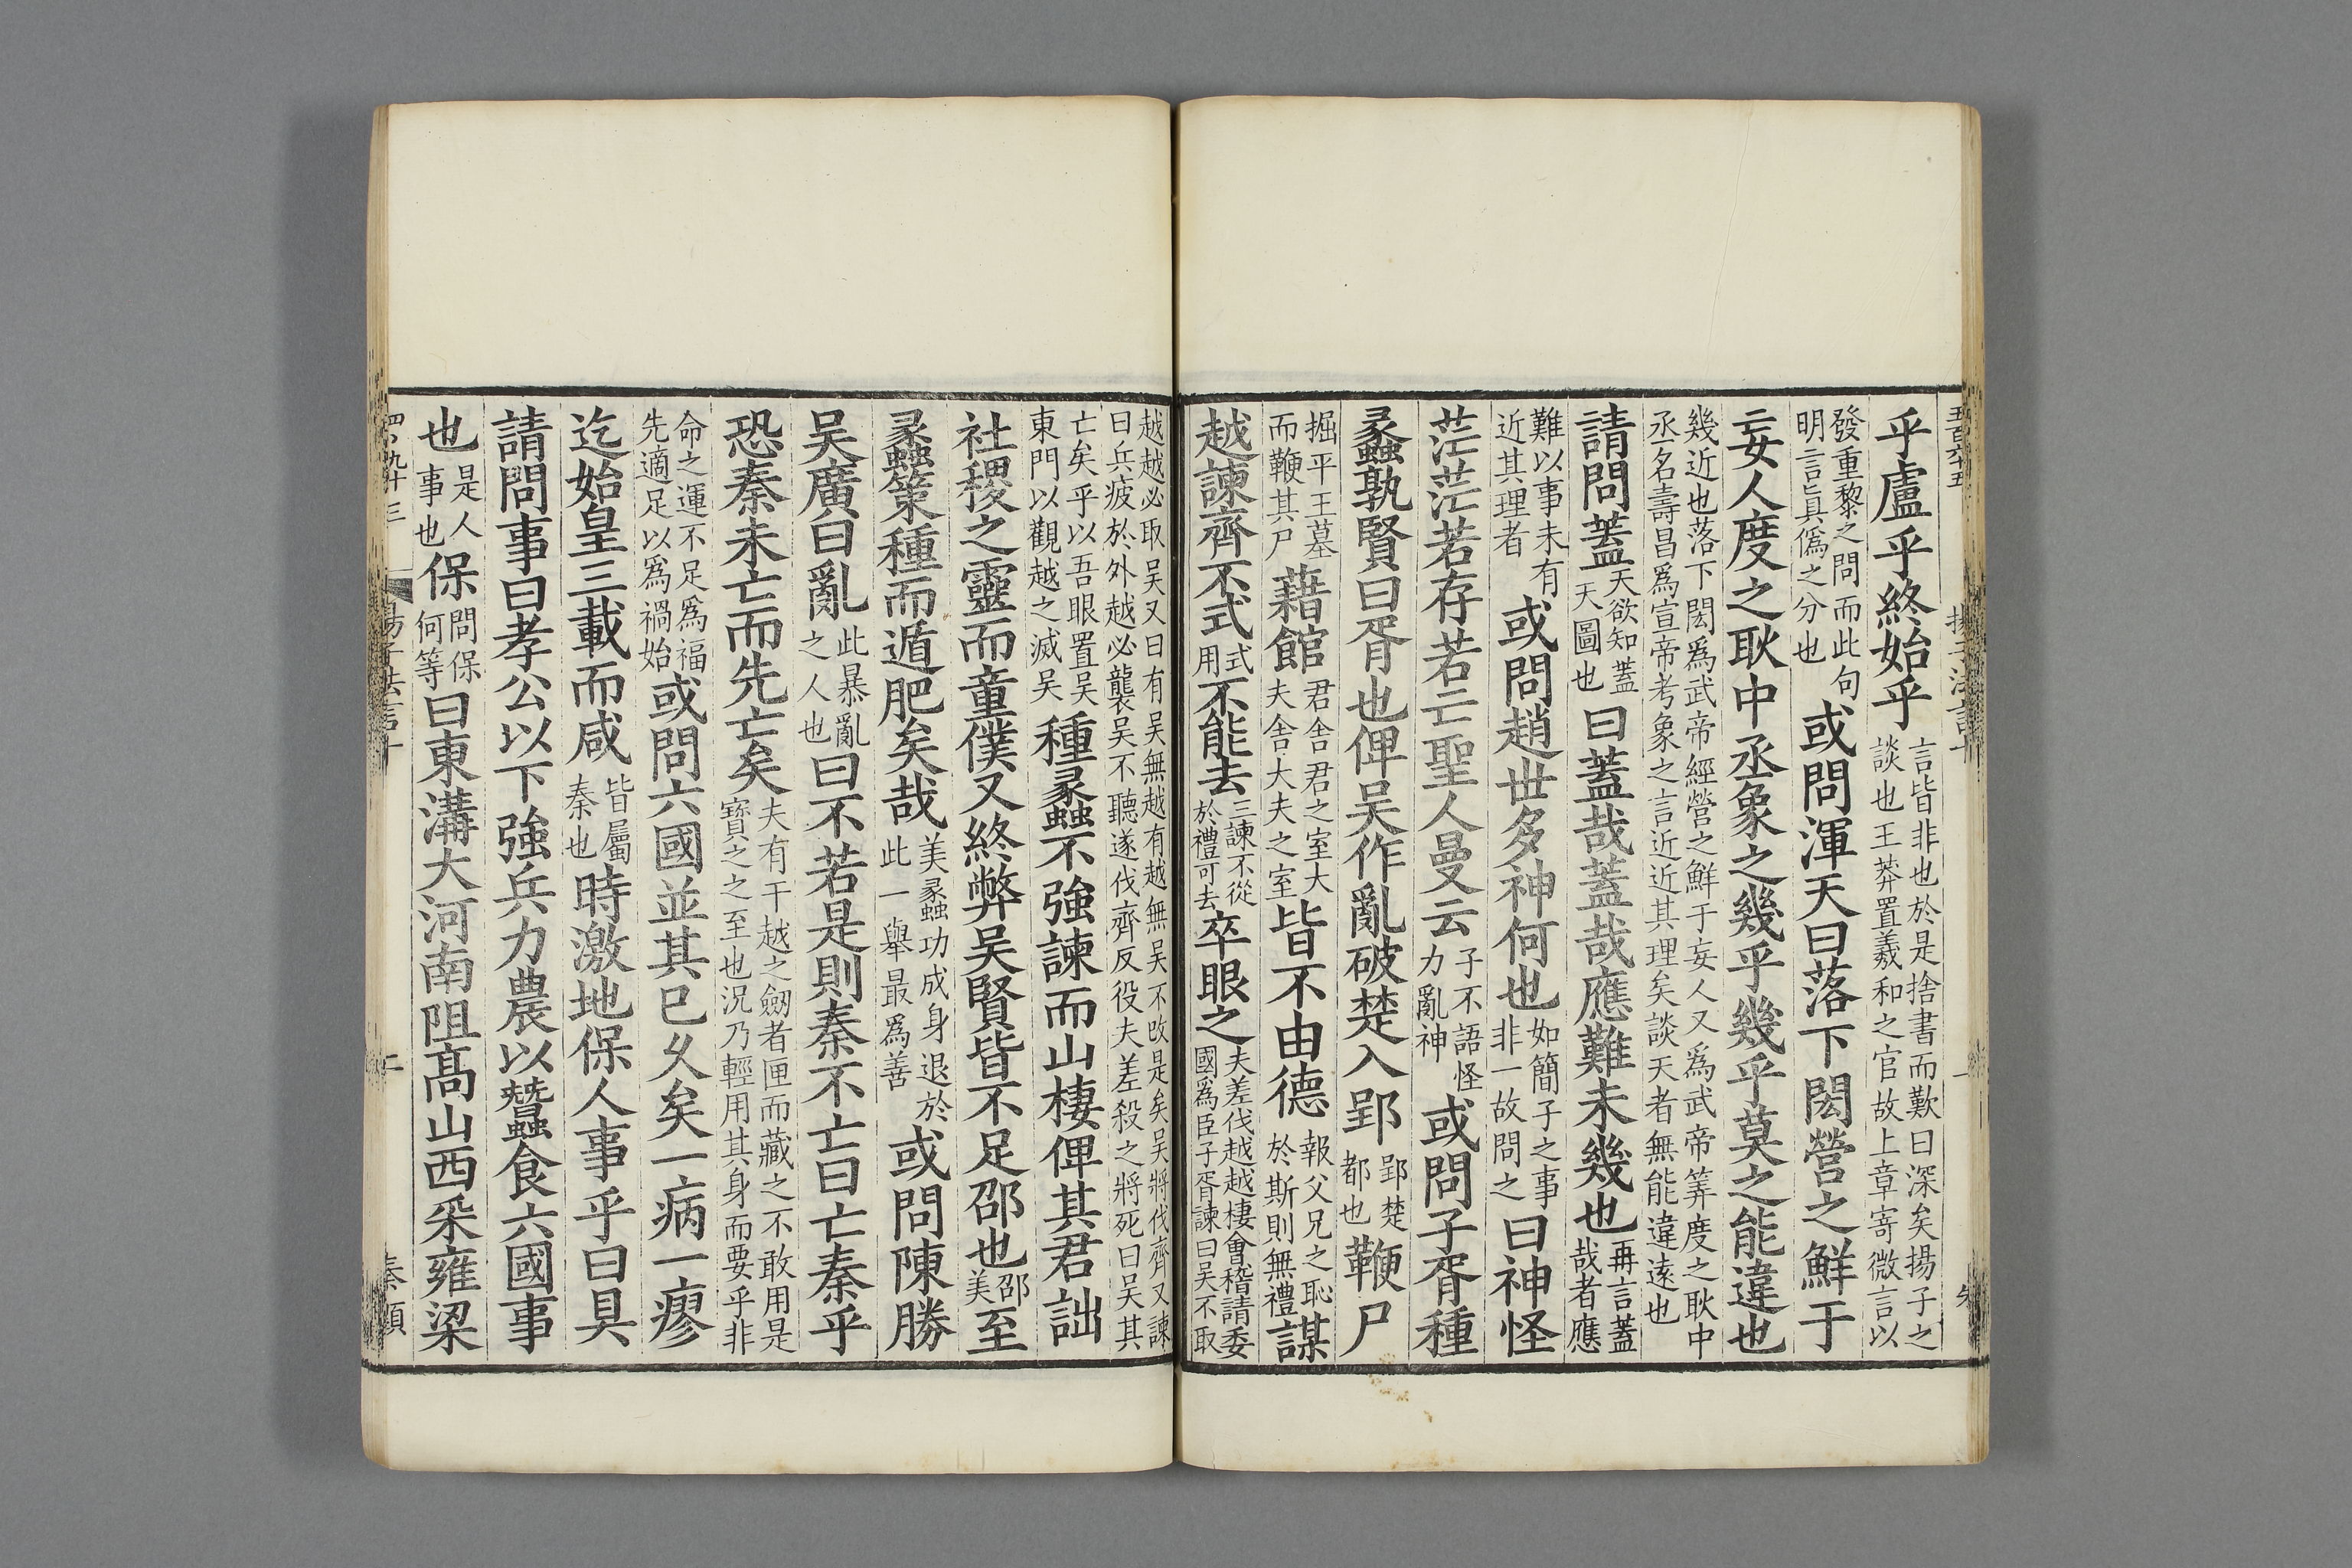 乎盧乎終始乎言皆非也於是捨書而歎曰深矣揚子之談也王莽置羲和之官故上章寄微言以
發重黎之問而此句明言真偽之分也或問渾天曰落下閎營之鮮于
妄人度之耿中丞象之幾乎幾乎莫之能違也
幾近也落下閎爲武帝經營之鮮于妄人又爲武帝筭度之耿中丞名壽昌爲宣帝考象之言近近其理矣談天者無能違遠也
請問蓋天欲知蓋天圖也曰蓋哉蓋哉應難未幾也再言蓋哉者應
難以事未有近其理者或問趙世多神何也如簡子之事非一故問之曰神怪
茫茫若存若亡聖人曼云子不語怪力亂神或問子胥種
蠡孰賢曰胥也俾吴作亂破楚入郢郢楚都也鞭尸
掘平王墓而鞭其尸藉館君舍君之室大夫舍大夫之室皆不由德報父兄之恥於斯則無禮謀
越諫齊不式式用不能去三諫不從於禮可去卒眼之夫差伐越越棲會稽請委國爲臣子胥諫曰吴不取
越越必取吴又曰有吴無越有越無吴不改是矣吴將伐齊又諫曰兵疲於外越必襲吴不聽遂伐齊反役夫差殺之將死曰吴其
亡矣乎以吾眼置吴東門以觀越之滅吴種蠡不強諫而山棲俾其君詘
社稷之靈而童僕又終弊吴賢皆不足邵也邵美至
蠡策種而遁肥矣哉美蠡功成身退於此一舉最爲善或問陳勝
吴廣曰亂此暴亂之人也曰不若是則秦不亡曰亡秦乎
恐秦未亡而先亡矣夫有干越之劒者匣而藏之不敢用是寶之之至也況乃輕用其身而要乎非
命之運不足爲福先適足以爲禍始或問六國並其已久矣一病一瘳
迄始皇三載而咸皆屬秦也時激地保人事乎曰具
請問事曰孝公以下強兵力農以蠶食六國事
也是人事也保問保何等曰東溝大河南阻高山西采雍梁